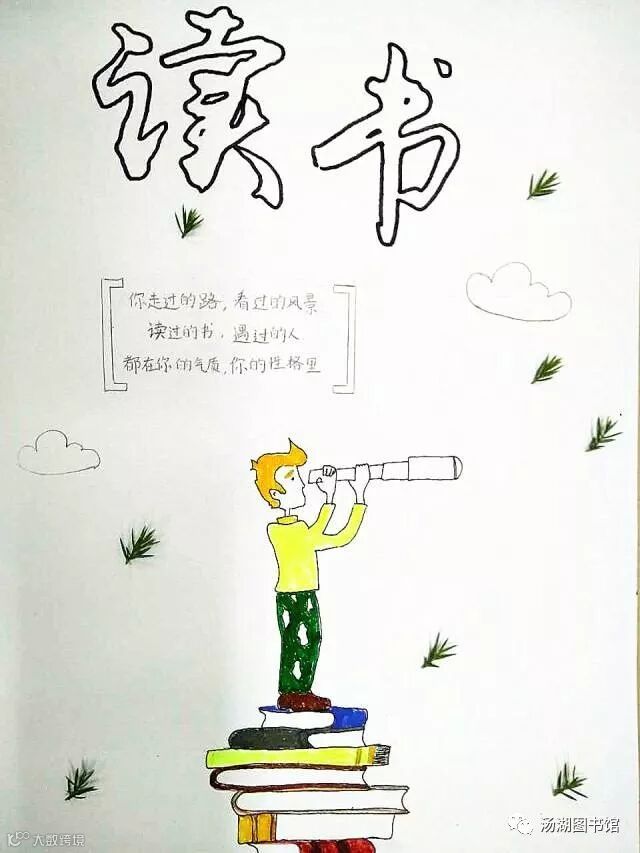 读书
你走过的路，看过的风景
读过的书，遇过的人
都在你的气质，你的性格里
大数跨境
汤湖图书馆